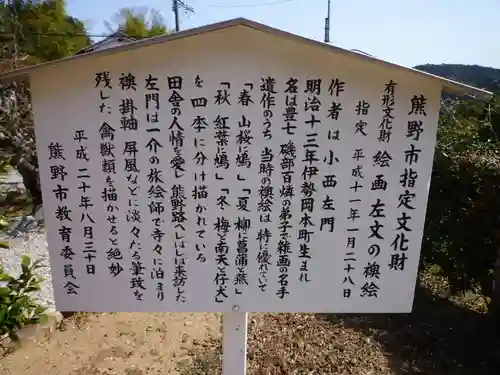 熊野市指定文化財
有形文化財 絵画 左文の襖絵
指定 平成十一年一月二十八日
作者は 小西左門
明治十三年伊勢岡本町生まれ
名は豊七 磯部百鱗の弟子で雑画の名手
遺作のうち 当時の襖絵は特に優れていて
「春 山桜に鳩」「夏 柳に菖蒲と燕」
「秋 紅葉に鳩」「冬 梅と南天と仔犬」
を四季に分け描かれている
田舎の人情を愛し熊野路へしばしば来訪した
左門は一介の旅絵師で寺々に泊まり
襖 掛軸 屏風などに淡々たる筆致を
残した 禽獣類を描かせると絶妙
平成二十年八月三十日
熊野市教育委員会